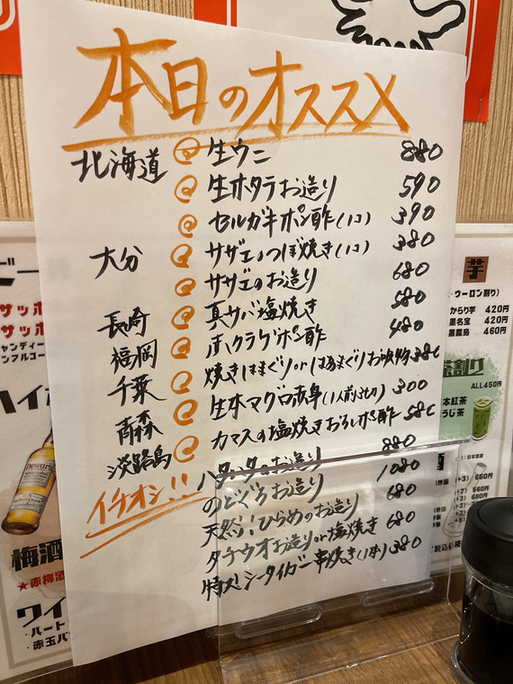 本日のオススメ
北海道 生ウニ 880
生ホタテお造り 590
セルガキポン酢(1コ) 390
大分 サザエのつぼ焼き(1コ) 380
サザエのお造り 680
長崎 真サバ塩焼き 580
福岡 赤クラゲポン酢 480
千葉 焼きはまぐり or はまぐりお吸物 380
青森 生本マグロ赤身(1人前3切) 300
淡路島 カマスの塩焼きおろしポン酢 580
イチオシ!! ハタハタのお造り 880
のどぐろお造り 1080
天然!ひらめのお造り 680
タチウオお造り or 塩焼き 680
特大!シータイガー串焼き(1本) 380
ビー
サッポ
サッポ
キャンディー
ンアルコー
ハイボ
Dewar's
梅酒
★赤梅酒
ワイ
・ハート
・赤玉パ
芋
・ウーロン割り)
からり芋 420円
黒名宝 420円
黒霧島 460円
茶割り
ALL450円
本紅茶
うじ茶